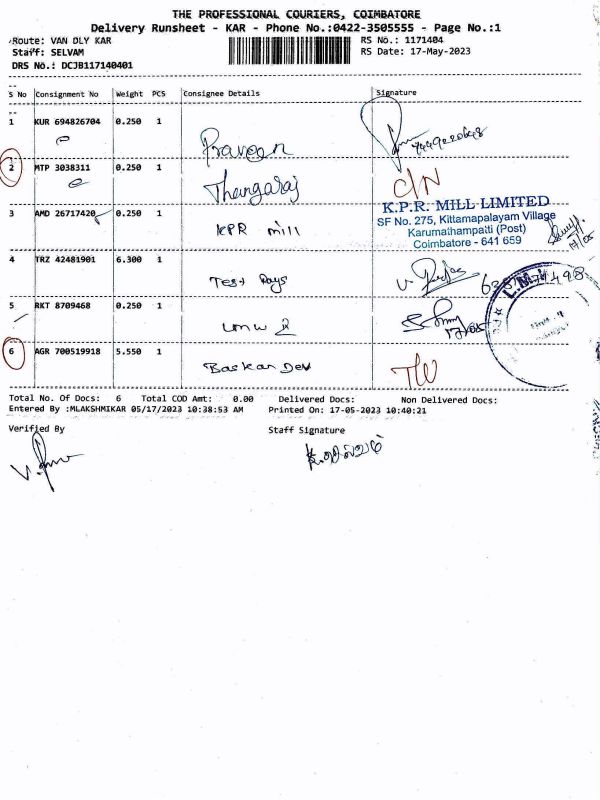 THE PROFESSIONAL COURIERS, COIMBATORE
Delivery Runsheet - KAR - Phone No.:0422-3505555 - Page No.:1
Route: VAN DLY KAR RS No.: 1171404
Staff: SELVAM RS Date: 17-May-2023
DRS No.: DCJB117140401
S No Consignment No Weight PCS Consignee Details Signature
1 KUR 694826704 0.250 1
Praveen
2 MTP 3038311 0.250 1
Thangaraj C/N
3 AMD 26717420 0.250 1
KPR mill
K.P.R. MILL LIMITED
SF No. 275, Kittampalayam Village
Karumathampatti (Post)
Coimbatore - 641 659
17/05
4 TRZ 42481901 6.300 1
Test Rays
5 RKT 8709468 0.250 1
LMW 2 17/05
L.M.W
6 AGR 700519918 5.550 1
Baskar Dev
Total No. Of Docs: 6 Total COD Amt: 0.00 Delivered Docs: Non Delivered Docs:
Entered By :MLAKSHMIKAR 05/17/2023 10:38:53 AM Printed On: 17-05-2023 10:40:21
Verified By Staff Signature